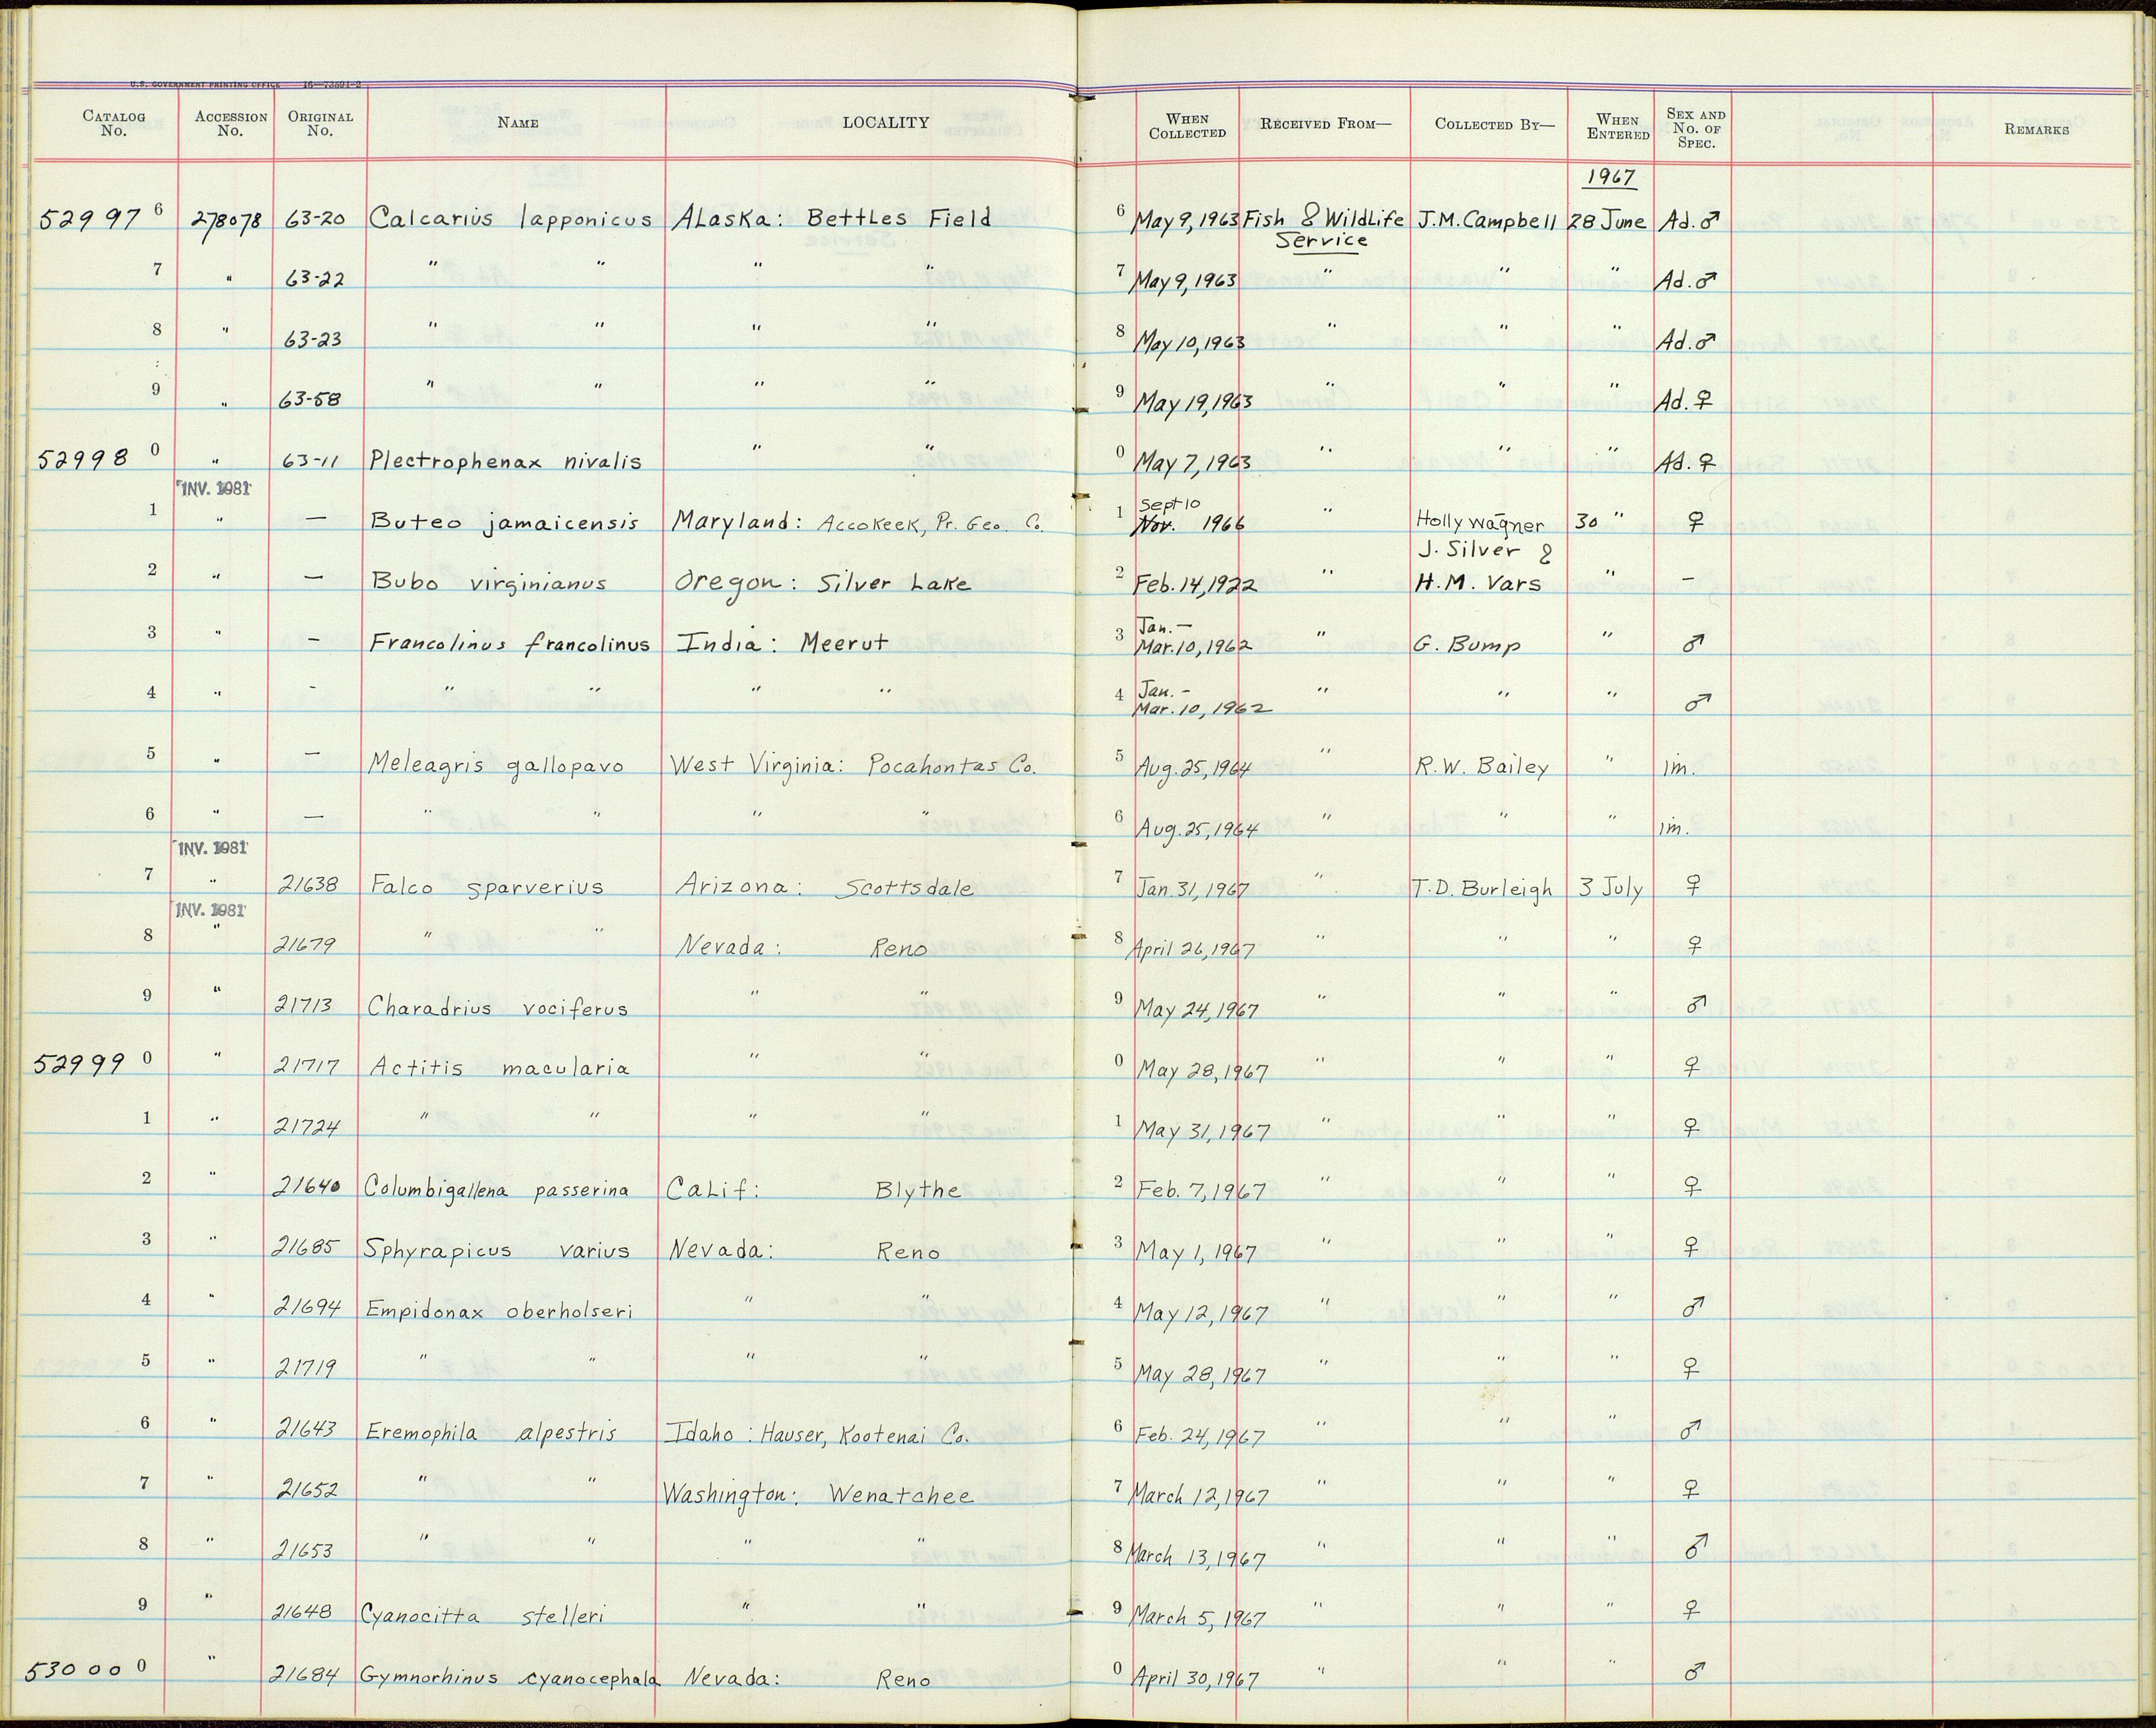 U.S. GOVERNMENT PRINTING OFFICE 16—73591-2
CATALOG No. ACCESSION No. ORIGINAL No. NAME LOCALITY WHEN COLLECTED RECEIVED FROM— COLLECTED BY— WHEN ENTERED SEX AND No. OF SPEC. REMARKS
1967
52997 6 278078 63-20 Calcarius lapponicus ALaska: BettLes Field 6 May 9, 1963 Fish & WildLife Service J.M. Campbell 28 June Ad. ♂
7 " 63-22 " " " " 7 May 9, 1963 " " " Ad. ♂
8 " 63-23 " " " " 8 May 10, 1963 " " " Ad. ♂
9 " 63-58 " " " " 9 May 19, 1963 " " " Ad. ♀
52998 0 " 63-11 Plectrophenax nivalis " " 0 May 7, 1963 " " " Ad. ♀
INV. 1981
1 " — Buteo jamaicensis Maryland: Accokeek, Pr. Geo. Co. 1 Sept 10 Nov. 1966 " Holly Wagner 30 " ♀
2 " — Bubo virginianus Oregon: Silver Lake 2 Feb. 14, 1922 " J. Silver & H.M. Vars " –
3 " – Francolinus francolinus India: Meerut 3 Jan. — Mar. 10, 1962 " G. Bump " ♂
4 " - " " " " 4 Jan. - Mar. 10, 1962 " " " ♂
5 " — Meleagris gallopavo West Virginia: Pocahontas Co. 5 Aug. 25, 1964 " R.W. Bailey " im.
6 " — " " " " 6 Aug. 25, 1964 " " " im.
INV. 1981
7 " 21638 Falco sparverius Arizona: Scottsdale 7 Jan. 31, 1967 " T.D. Burleigh 3 July ♀
INV. 1981
8 " 21679 " " Nevada: Reno 8 April 26, 1967 " " " ♀
9 " 21713 Charadrius vociferus " " 9 May 24, 1967 " " " ♂
52999 0 " 21717 Actitis macularia " " 0 May 28, 1967 " " " ♀
1 " 21724 " " " " 1 May 31, 1967 " " " ♀
2 " 21640 Columbigallena passerina CaLif: Blythe 2 Feb. 7, 1967 " " " ♀
3 " 21685 Sphyrapicus varius Nevada: Reno 3 May 1, 1967 " " " ♀
4 " 21694 Empidonax oberholseri " " 4 May 12, 1967 " " " ♂
5 " 21719 " " " " 5 May 28, 1967 " " " ♀
6 " 21643 Eremophila alpestris Idaho: Hauser, Kootenai Co. 6 Feb. 24, 1967 " " " ♂
7 " 21652 " " Washington: Wenatchee 7 March 12, 1967 " " " ♀
8 " 21653 " " " " 8 March 13, 1967 " " " ♂
9 " 21648 Cyanocitta stelleri " " 9 March 5, 1967 " " " ♀
53000 0 " 21684 Gymnorhinus cyanocephala Nevada: Reno 0 April 30, 1967 " " " ♂